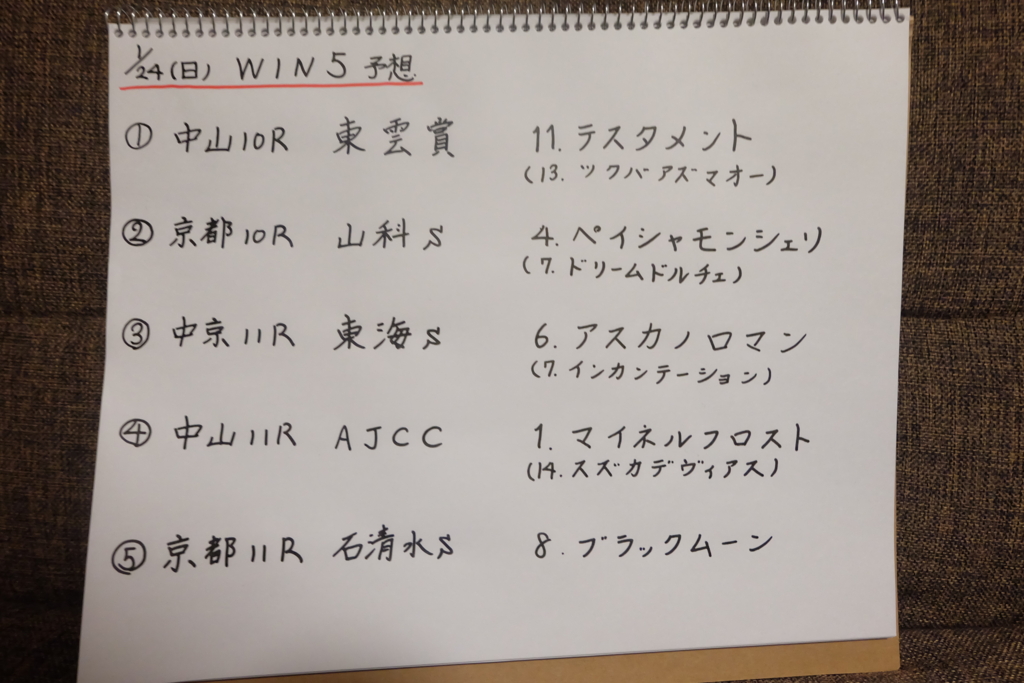 1/24(日) WIN5 予想
① 中山10R 東雲賞 11. テスタメント
(13. ツクバアズマオー)
② 京都10R 山科S 4. ペイシャモンシェリ
(7. ドリームドルチェ)
③ 中京11R 東海S 6. アスカノロマン
(7. インカンテーション)
④ 中山11R AJCC 1. マイネルフロスト
(14. スズカデヴィアス)
⑤ 京都11R 石清水S 8. ブラックムーン